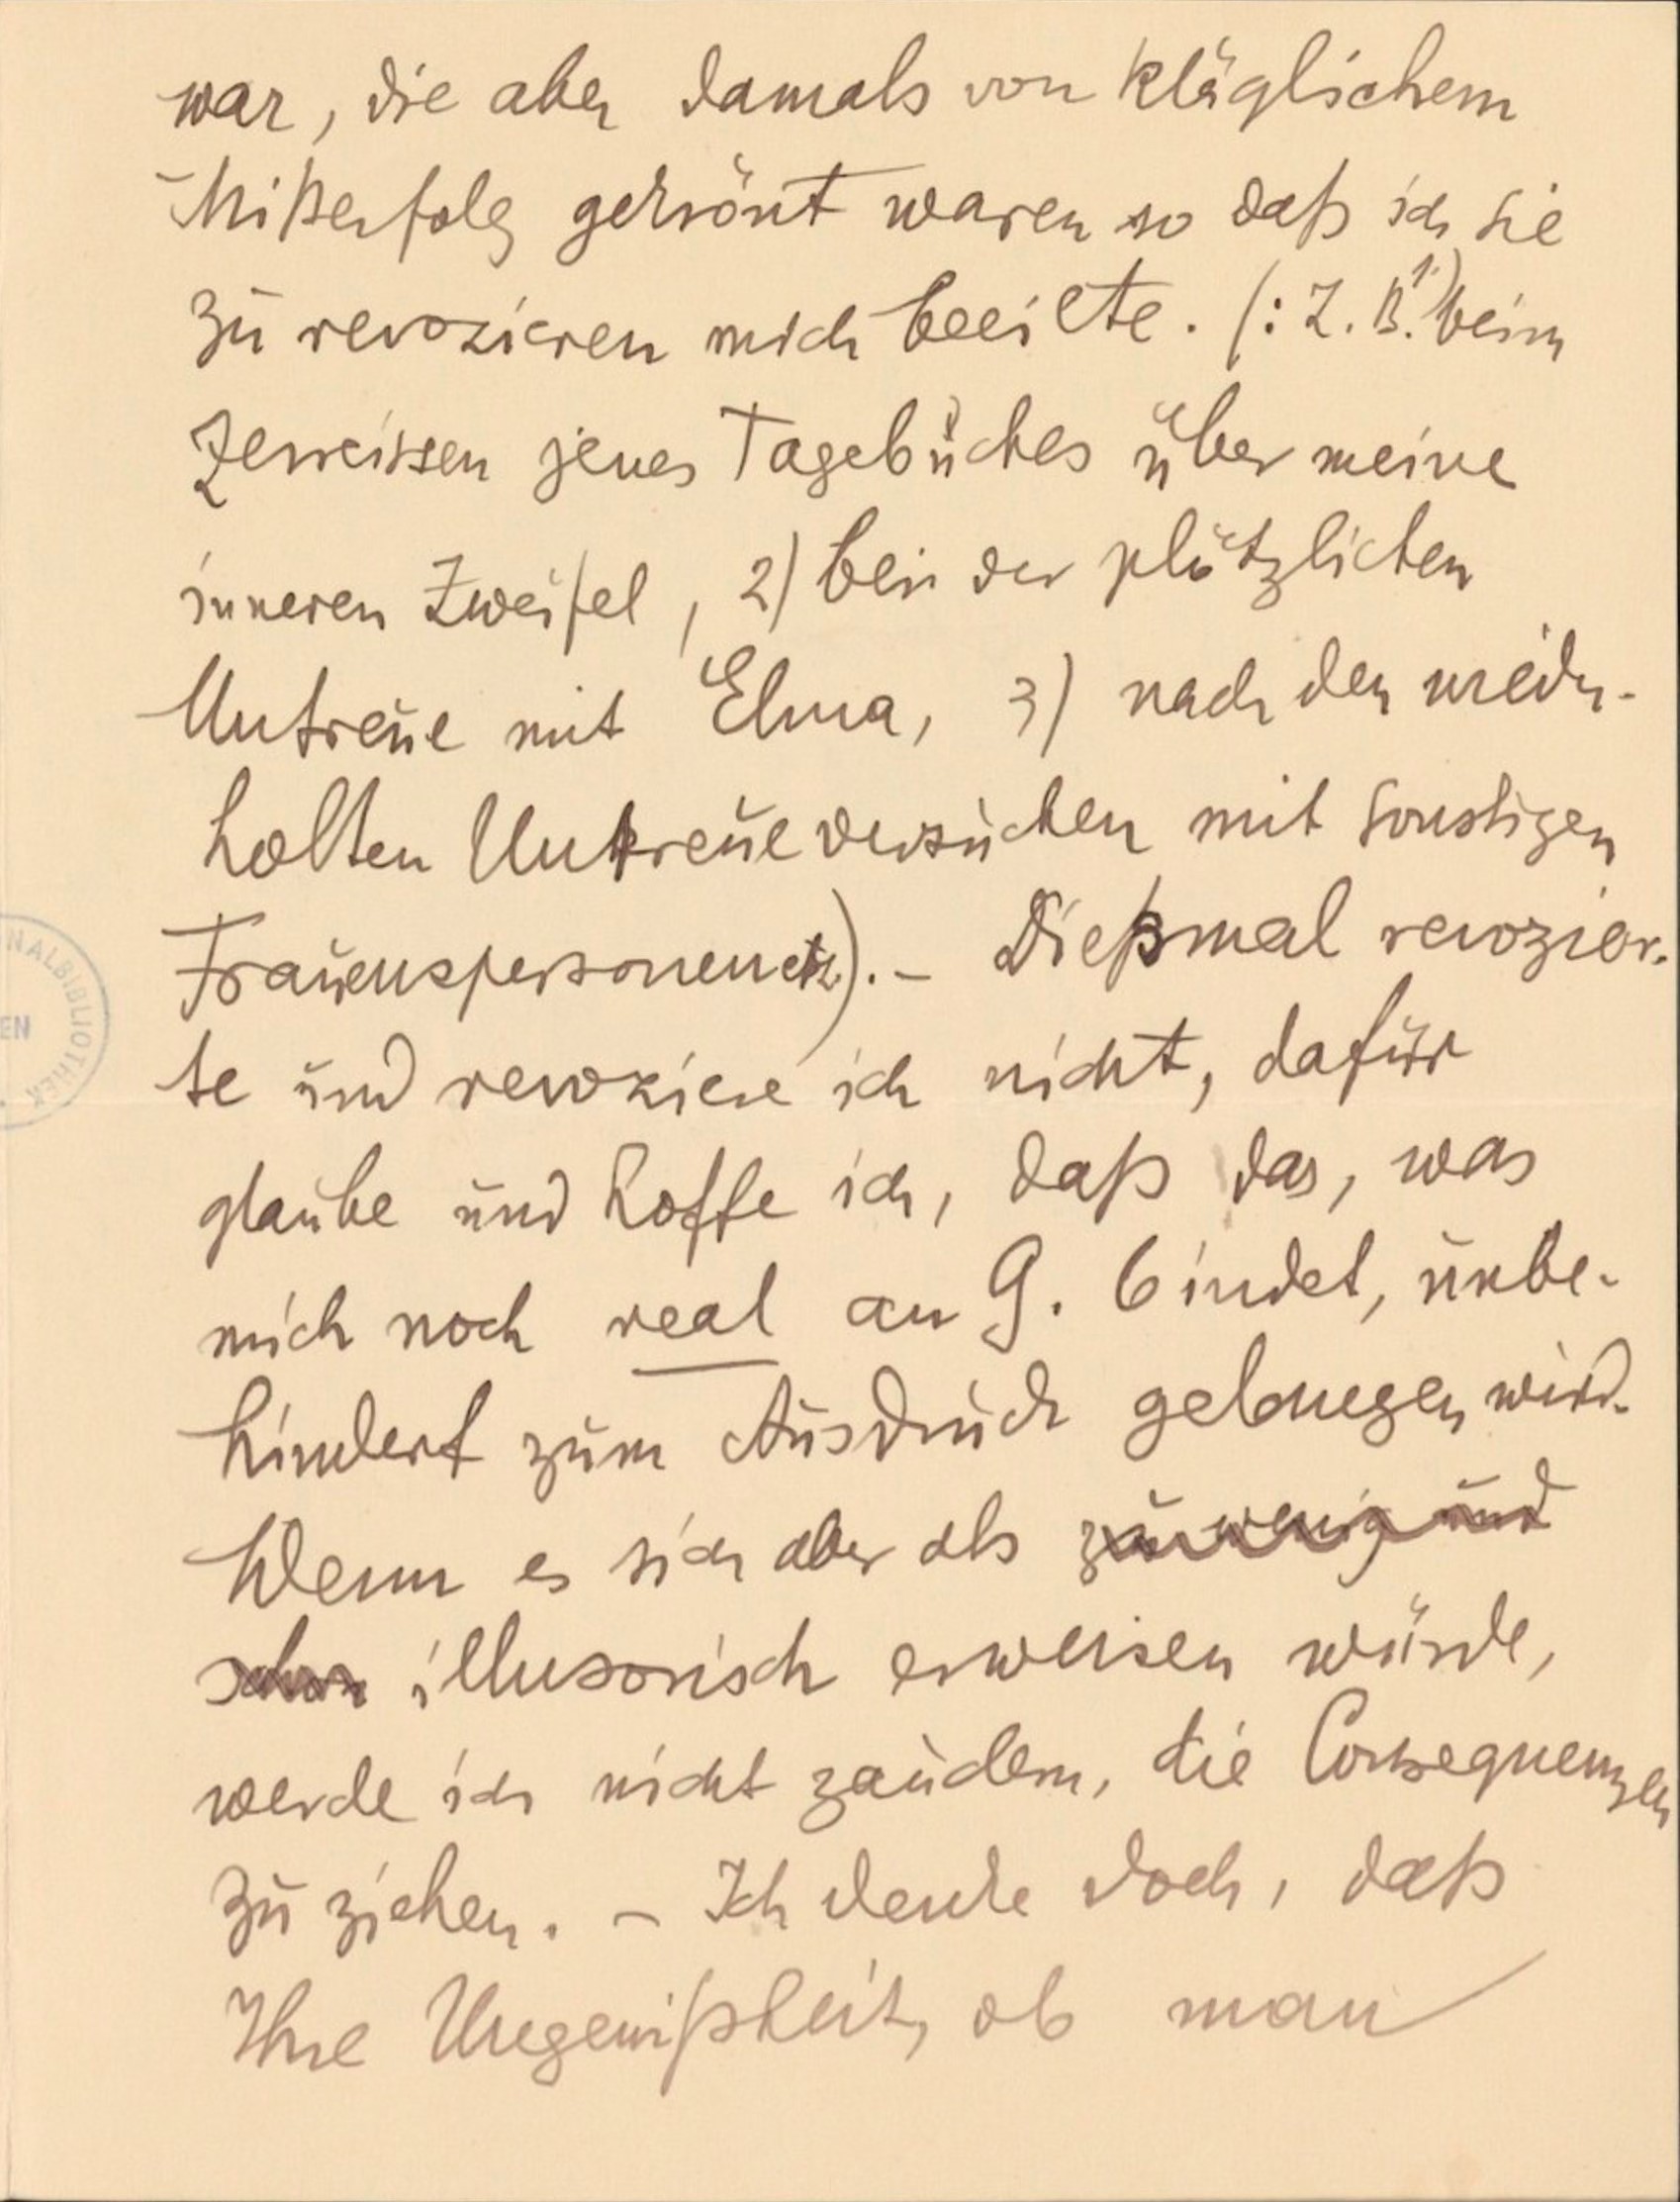 war, die aber damals von kläglichem
Mißerfolg gekrönt waren so daß ich sie
zu revozieren mich beeilte. (: Z. B. 1.) beim
Zerreissen jenes Tagebuches über meine
inneren Zweifel, 2) bei der plötzlichen
Untreue mit Elma, 3) nach den wieder-
holten Untreueversuchen mit sonstigen
Frauenspersonen etz.). – Dießmal revozier-
te und revoziere ich nicht, dafür
glaube und hoffe ich, daß das, was
mich noch real an G. bindet, unbe-
hindert zum Ausdruck gelangen wird.
Wenn es sich aber als zu wenig und
schon illusorisch erweisen würde,
werde ich nicht zaudern, die Consequenzen
zu ziehen. – Ich denke doch, daß
Ihre Ungewißheit, ob man
NALBIBLIOTHEK
EN